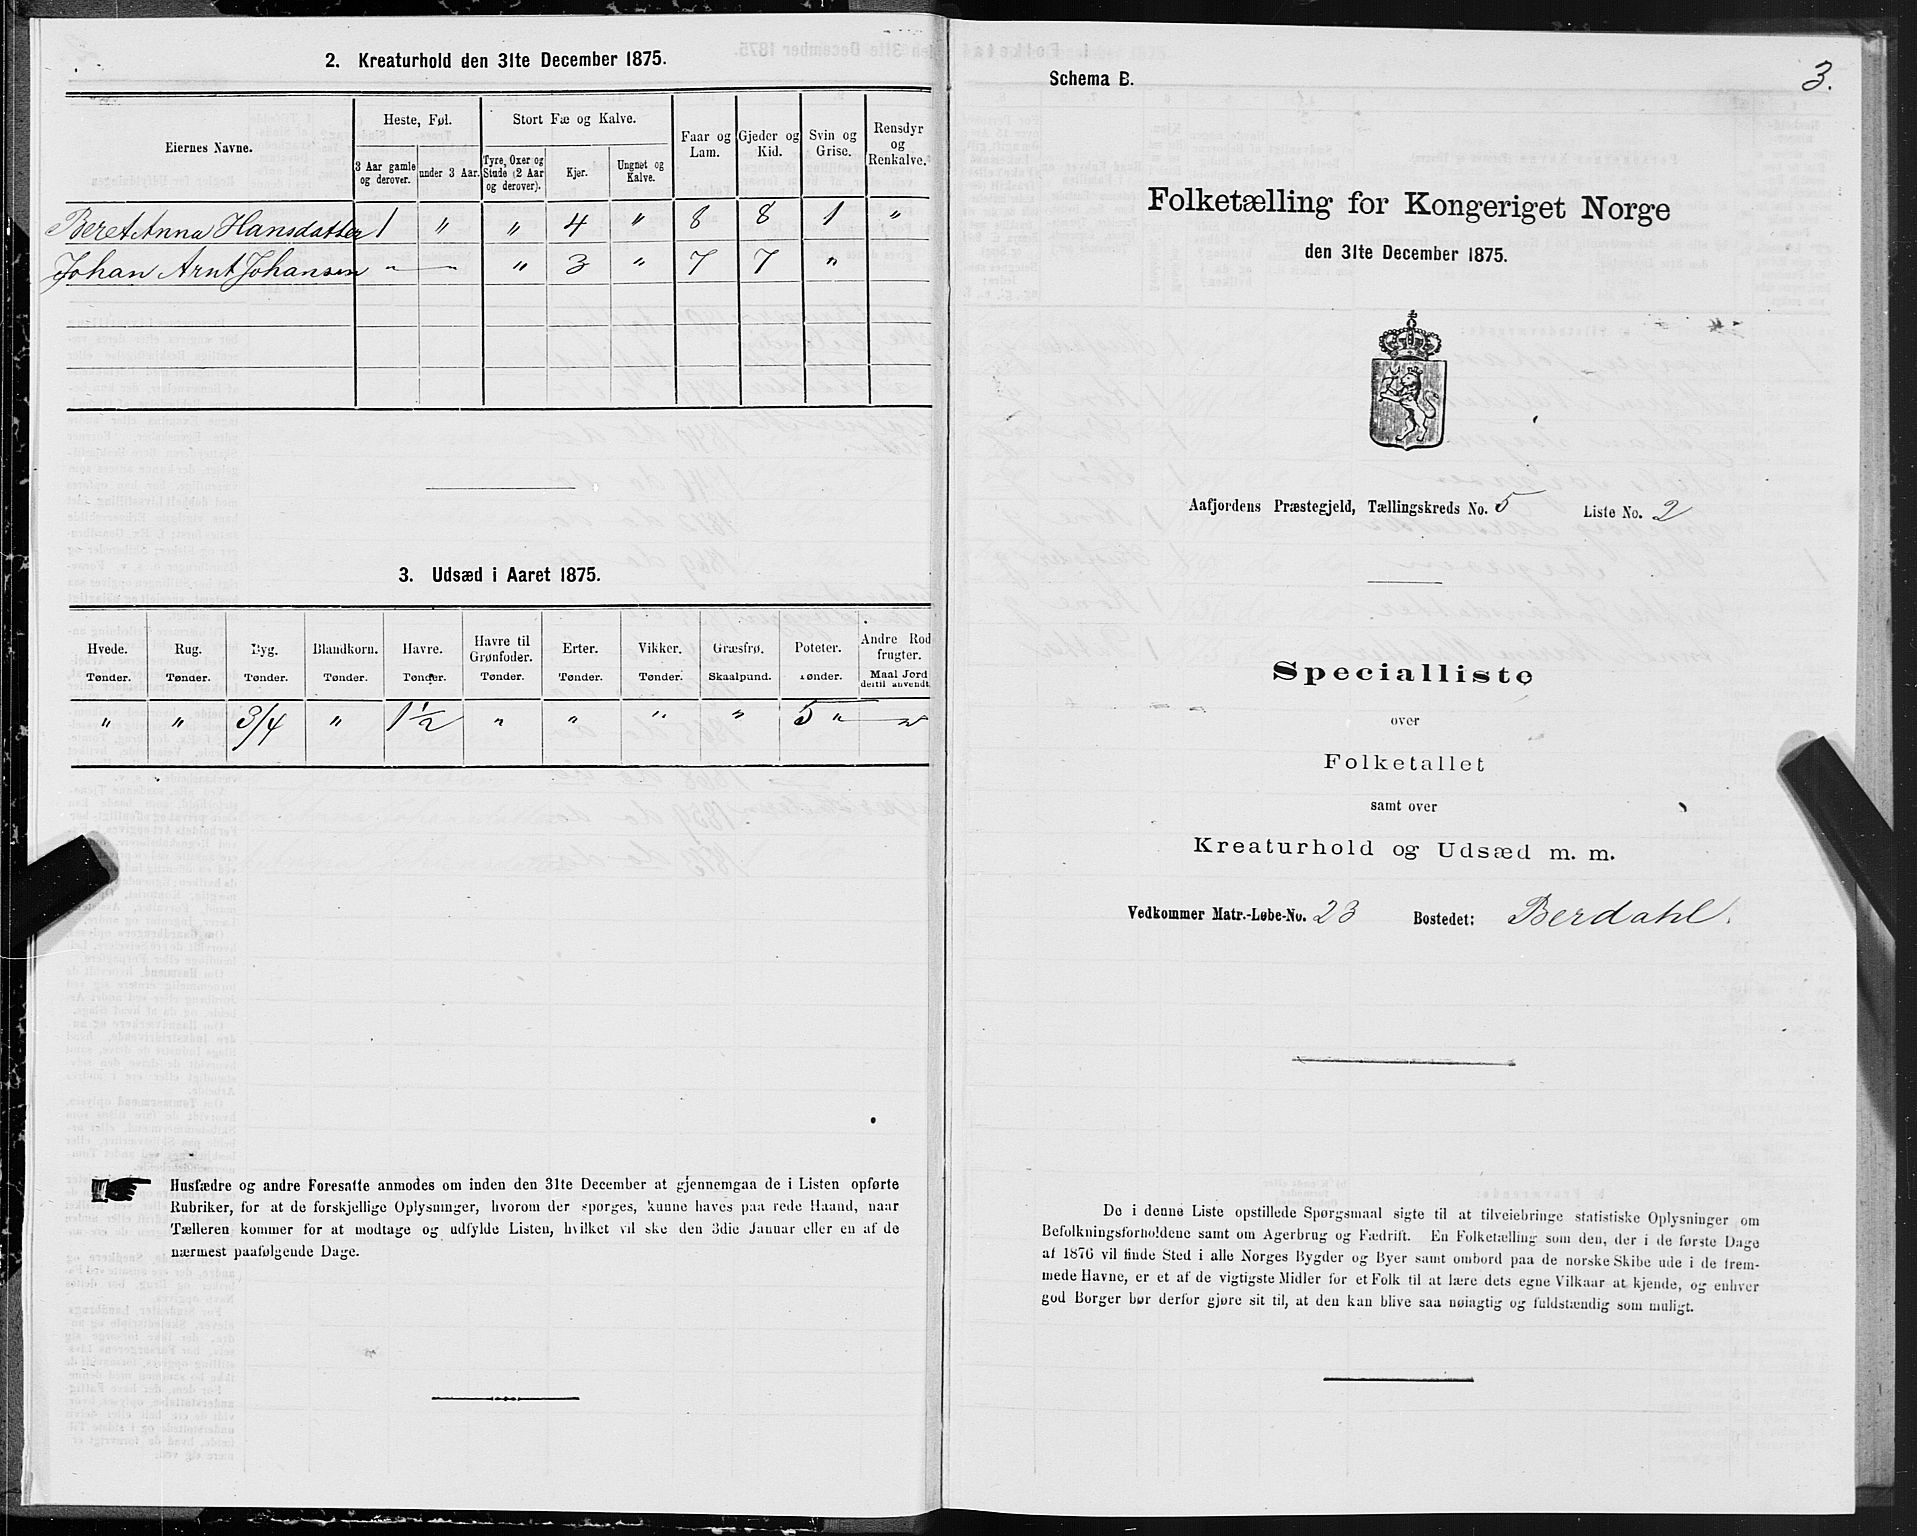 2. Kreaturhold den 31te December 1875.
Eiernes Navne.
Heste, Føl.
Stort Fæ og Kalve.
Faar og Lam.
Gjeder og Kid.
Svin og Grise.
Rensdyr og Renkalve.
3 Aar gamle og derover.
under 3 Aar.
Tyre, Oxer og Stude (2 Aar og derover).
Kjør.
Ungnøt og Kalve.
Beret Anna Hansdatter 1 " " 4 " 8 8 1 "
Johan Arnt Johansen " — " 3 " 7 7 "
3. Udsæd i Aaret 1875.
Hvede. Rug. Byg. Blandkorn. Havre. Havre til Grønfoder. Erter. Vikker. Græsfrø. Poteter. Andre Rodfrugter.
Tønder. Tønder. Tønder. Tønder. Tønder. Tønder. Tønder. Tønder. Skaalpund. Tønder. Maal Jord dertil anvendt.
" " 3/4 " 1 1/2 " " " " 5 " "
Husfædre og andre Foresatte anmodes om inden den 31te December at gjennemgaa de i Listen opførte
Rubriker, for at de forskjellige Oplysninger, hvorom der spørges, kunne haves paa rede Haand, naar
Tælleren kommer for at modtage og udfylde Listen, hvilket vil ske den 3die Januar eller en af de
nærmest paafølgende Dage.
3.
Schema B.
Folketælling for Kongeriget Norge
den 31te December 1875.
Aafjordens Præstegjeld, Tællingskreds No. 5 Liste No. 2
Specialliste
over
Folketallet
samt over
Kreaturhold og Udsæd m. m.
Vedkommer Matr.-Løbe-No. 23 Bostedet: Berdahl.
De i denne Liste opstillede Spørgsmaal sigte til at tilveiebringe statistiske Oplysninger om
Befolkningsforholdene samt om Agerbrug og Fædrift. En Folketælling som den, der i de første Dage
af 1876 vil finde Sted i alle Norges Bygder og Byer samt ombord paa de norske Skibe ude i de frem-
mede Havne, er et af de vigtigste Midler for et Folk til at lære dets egne Vilkaar at kjende, og enhver
god Borger bør derfor gjøre sit til, at den kan blive saa nøiagtig og fuldstændig som muligt.